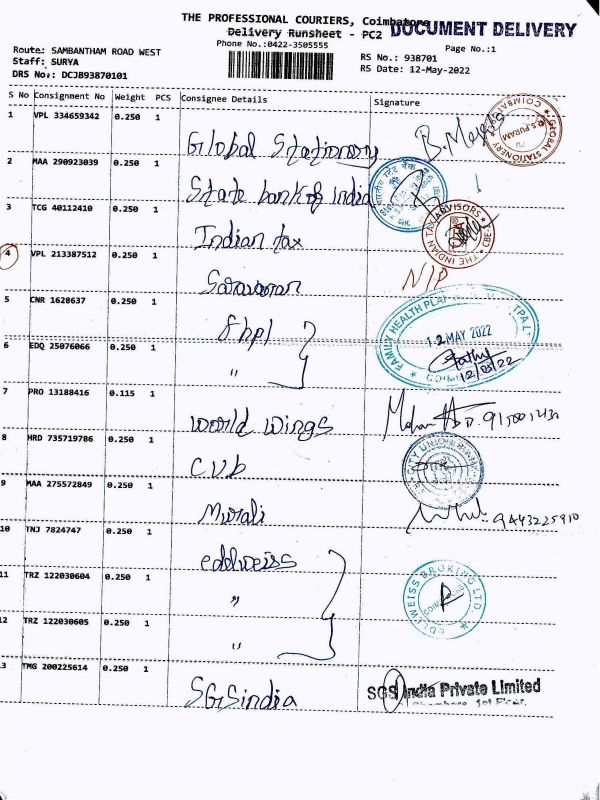 THE PROFESSIONAL COURIERS, Coimbatore
DOCUMENT DELIVERY
Delivery Runsheet - PC2
Phone No.:0422-3505555
Page No.:1
Route: SAMBANTHAM ROAD WEST
Staff: SURYA
DRS No: DCJB93870101
RS No.: 938701
RS Date: 12-May-2022
S No Consignment No Weight PCS Consignee Details Signature
1 VPL 334659342 0.250 1 Global Stationery
GLOBAL STATIONERY R.S. PURAM COIMBATORE
2 MAA 290923039 0.250 1 State bank of India
3 TCG 40112410 0.250 1 Indian tax
THE INDIAN TAX ADVISORS CBE
4 VPL 213387512 0.250 1 Saravanan N/P
5 CNR 1628637 0.250 1 fhpl
FAMILY HEALTH PLAN TPA
12 MAY 2022
12/05/22
6 EDQ 25076066 0.250 1 "
7 PRO 13188416 0.115 1 world wings Mohan
8 HRD 735719786 0.250 1 CUb
CITY UNION BANK
9 MAA 275572849 0.250 1 Murali 9443225910
10 TNJ 7824747 0.250 1 eddlweiss
11 TRZ 122030604 0.250 1 "
EDELWEISS BROKING LTD
COIMBATORE
12 TRZ 122030605 0.250 1 "
13 TMG 200225614 0.250 1 SGSindia
SGS India Private Limited